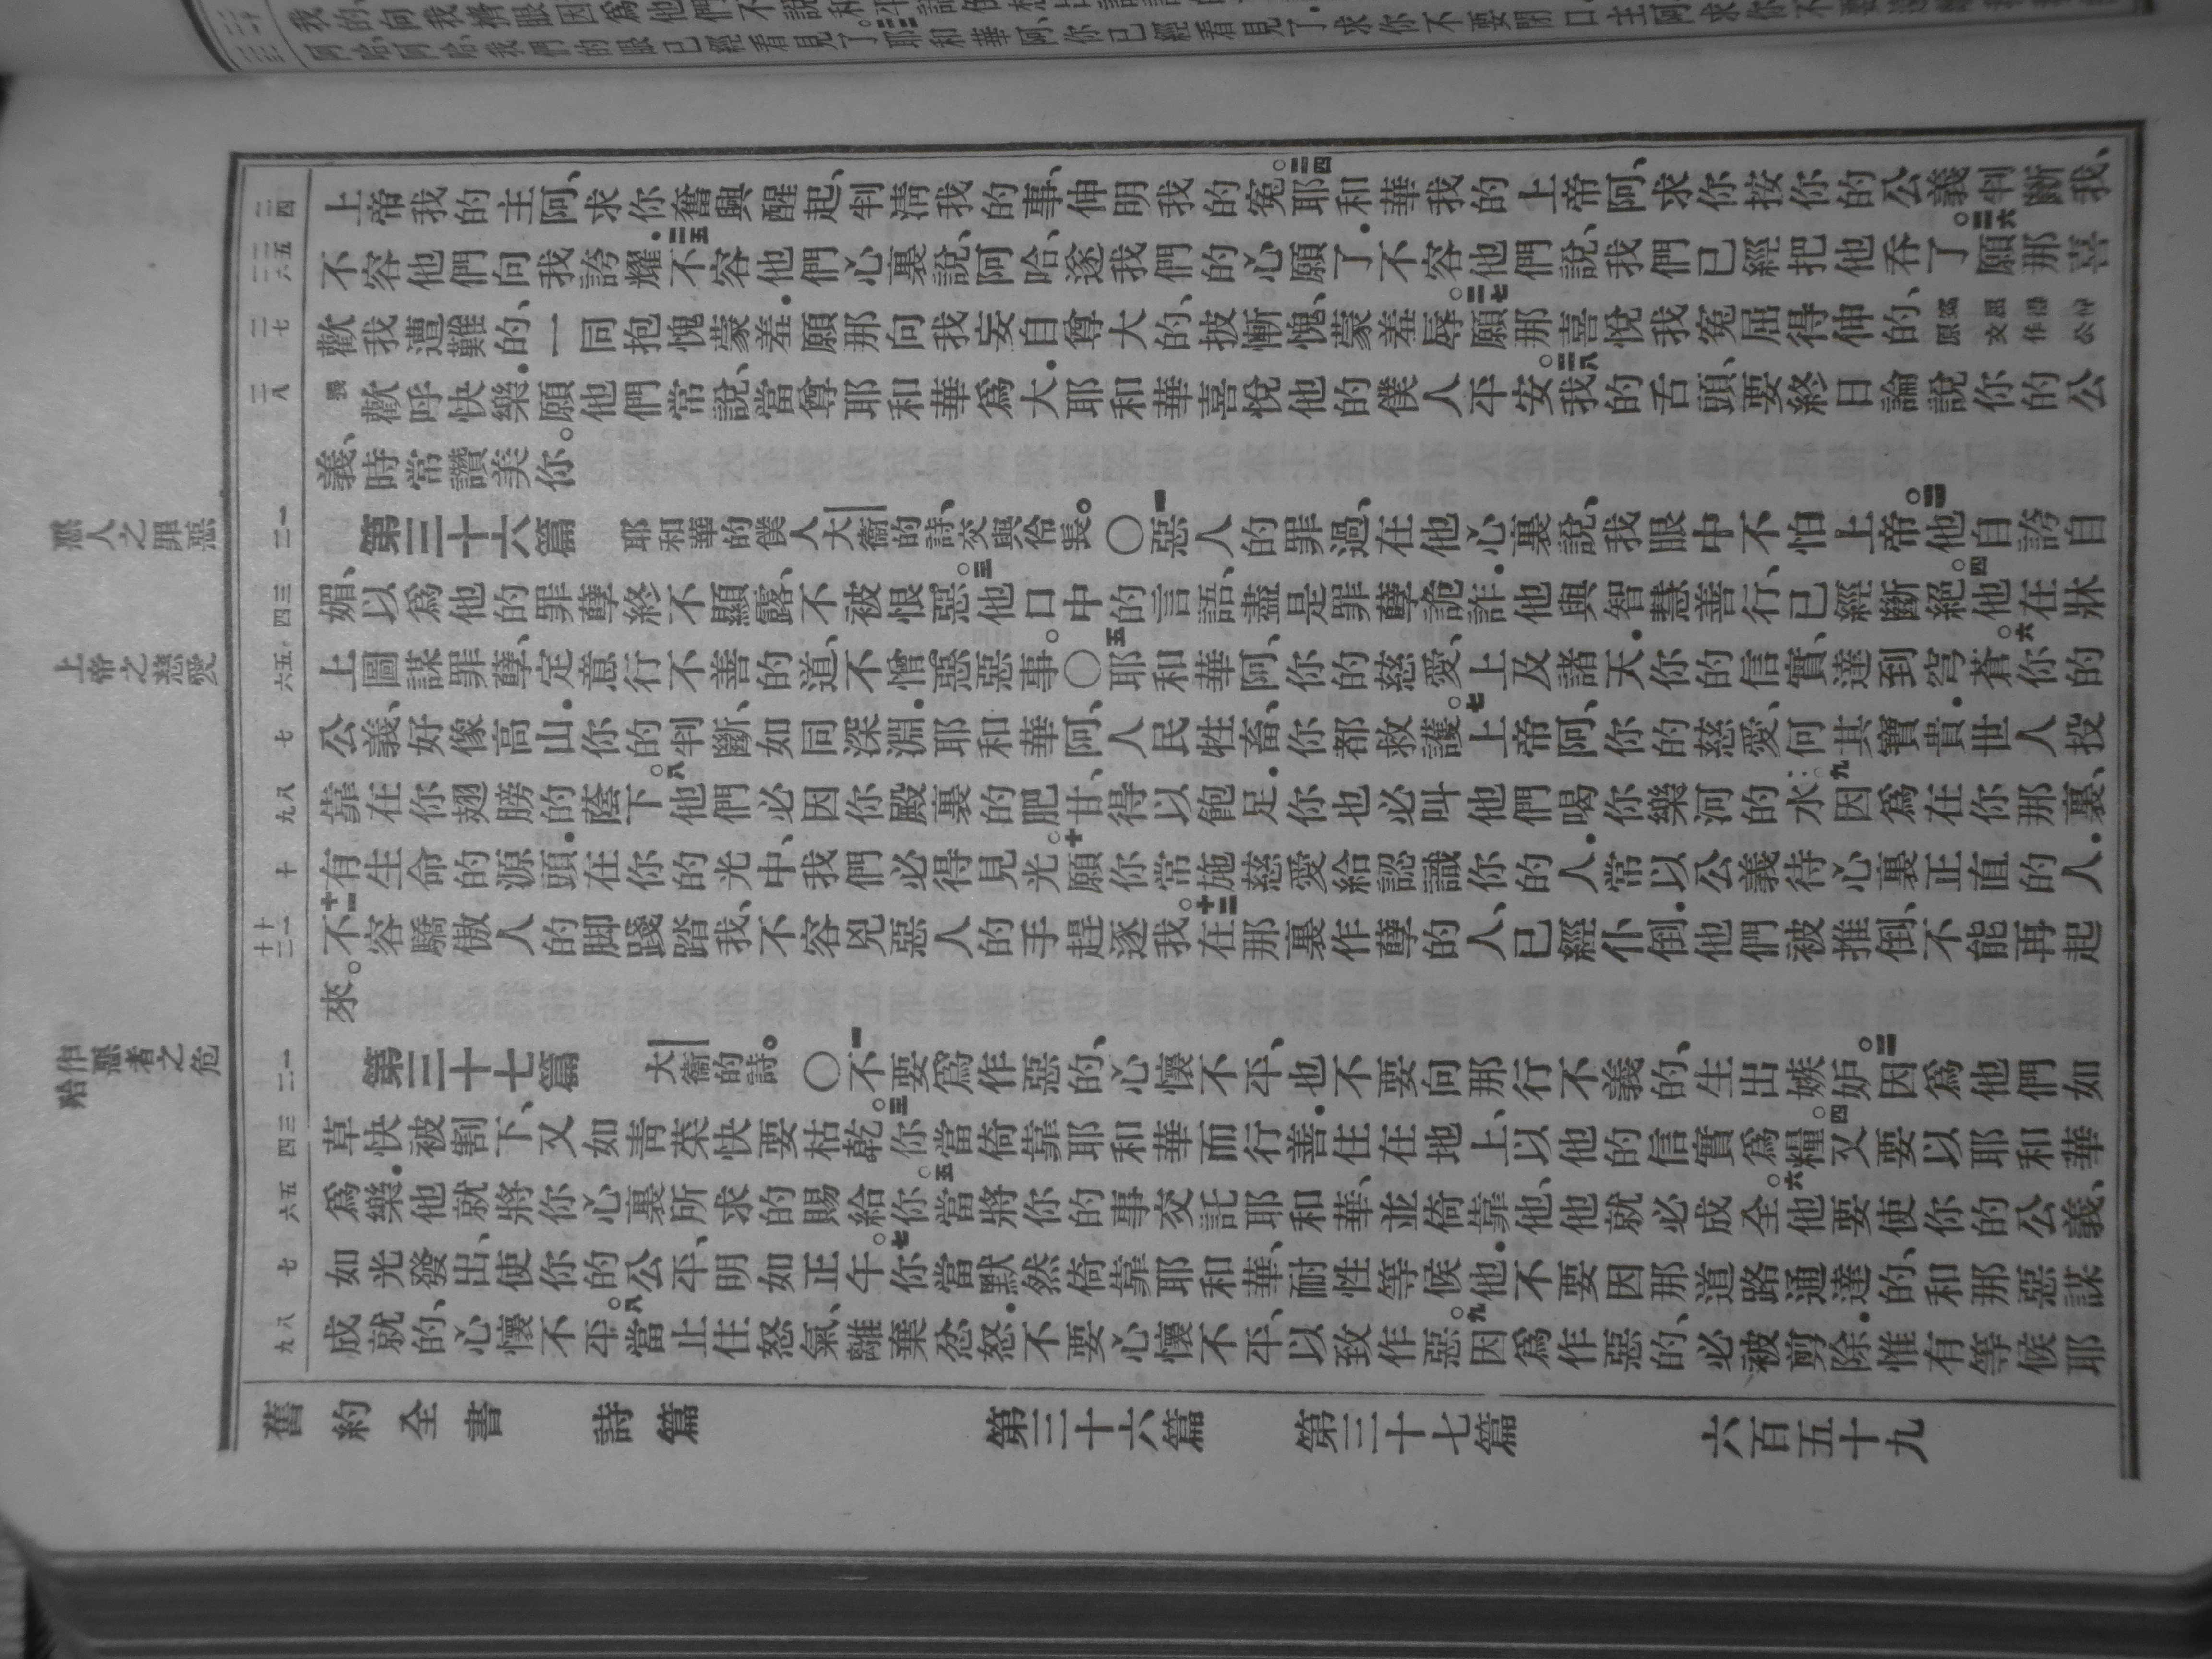 上帝我的主阿、求你奮興醒起、判清我的事、伸明我的冤。三四耶和華我的上帝阿、求你按你的公義判斷我、
不容他們向我誇耀.三五不容他們心裏說、阿哈、遂我們的心願了.不容他們說、我們已經把他吞了。三六願那喜
歡我遭難的、一同抱愧蒙羞.願那向我妄自尊大的、披慚愧、蒙羞辱。三七願那喜悅我冤屈得伸的、
歡呼快樂.願他們常說、當尊耶和華爲大.耶和華喜悅他的僕人平安。三八我的舌頭、要終日論說你的公
義、時常讚美你。
惡人之罪惡
一二
第三十六篇 耶和華的僕人大衞的詩、交與伶長。〇一惡人的罪過、在他心裏說、我眼中不怕上帝。二他自誇自
三四
媚、以爲他的罪孽終不顯露、不被恨惡。三他口中的言語、盡是罪孽詭詐.他與智慧善行、已經斷絕。四他在牀
上帝之慈愛
五六
上圖謀罪孽、定意行不善的道、不憎惡惡事。〇五耶和華阿、你的慈愛、上及諸天.你的信實、達到穹蒼。六你的
七
公義、好像高山.你的判斷、如同深淵.耶和華阿、人民牲畜、你都救護。七上帝阿、你的慈愛、何其寶貴.世人投
八九
靠在你翅膀的蔭下。八他們必因你殿裏的肥甘、得以飽足.你也必叫他們喝你樂河的水。九因爲在你那裏、
十
有生命的源頭.在你的光中、我們必得見光。十願你常施慈愛給認識你的人.常以公義待心裏正直的人.
十一十二
十一不容驕傲人的脚踐踏我、不容兇惡人的手趕逐我。十二在那裏作孽的人、已經仆倒.他們被推倒、不能再起
來。
作惡者之危殆
一二
第三十七篇 大衞的詩。〇一不要爲作惡的、心懷不平、也不要向那行不義的、生出嫉妒。二因爲他們如
三四
草快被割下、又如青菜快要枯乾。三你當倚靠耶和華而行善.住在地上、以他的信實爲糧。四又要以耶和華
五六
爲樂.他就將你心裏所求的賜給你。五當將你的事交託耶和華、並倚靠他、他就必成全。六他要使你的公義、
七
如光發出、使你的公平、明如正午。七你當默然倚靠耶和華、耐性等候他.不要因那道路通達的、和那惡謀
八九
成就的、心懷不平。八當止住怒氣、離棄忿怒.不要心懷不平、以致作惡。九因爲作惡的、必被剪除.惟有等候耶
舊約全書 詩篇 第三十六篇 第三十七篇 六百五十九